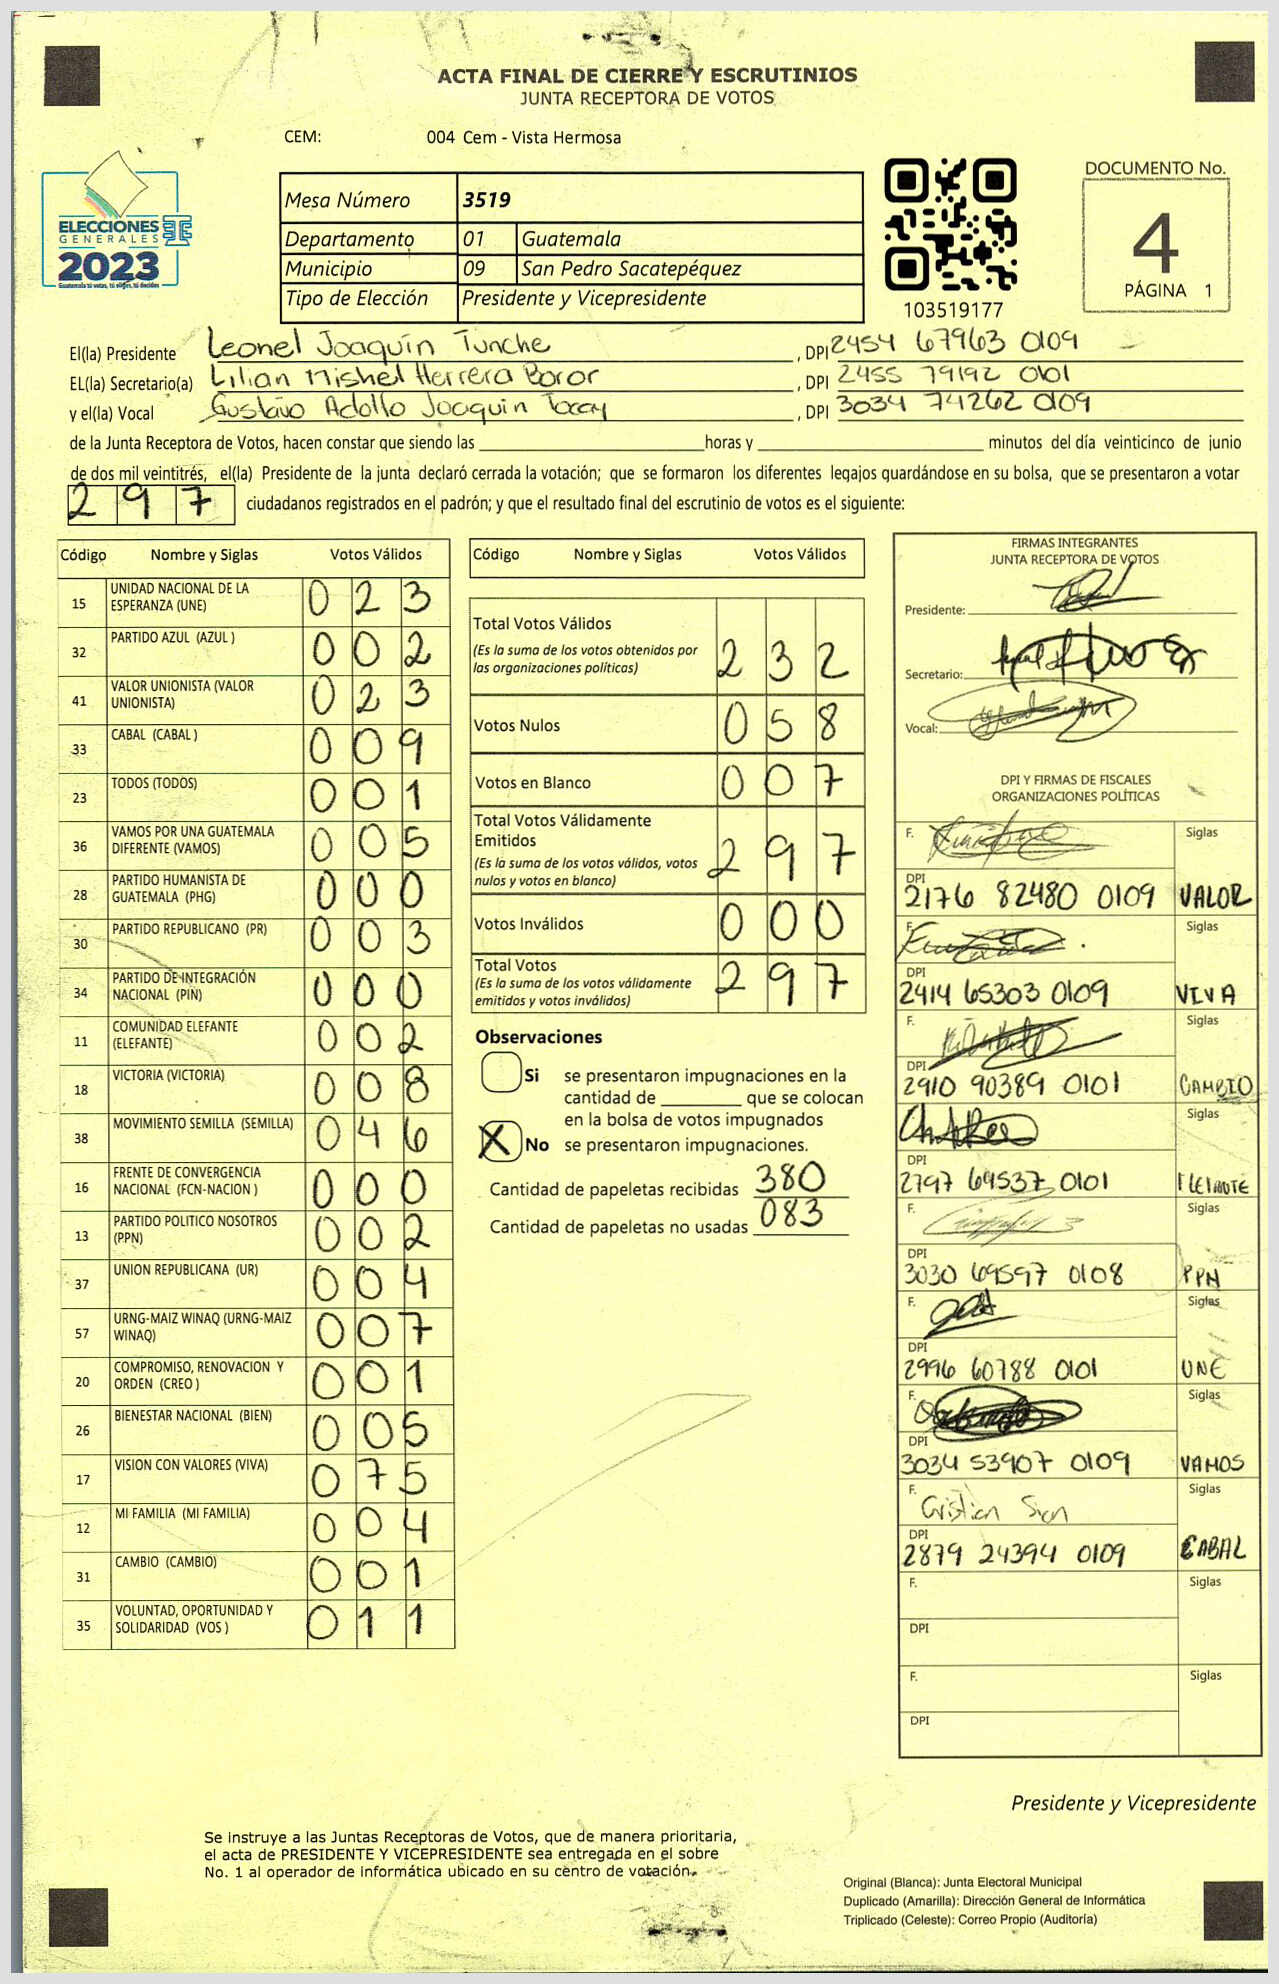 ACTA FINAL DE CIERRE Y ESCRUTINIOS
JUNTA RECEPTORA DE VOTOS
CEM: 004 Cem - Vista Hermosa
ELECCIONES
GENERALES
2023
Guatemala tú votas, tú eliges, tú decides
Mesa Número 3519
Departamento 01 Guatemala
Municipio 09 San Pedro Sacatepéquez
Tipo de Elección Presidente y Vicepresidente
103519177
DOCUMENTO No.
4
PÁGINA 1
El(la) Presidente Leonel Joaquín Tunche, DPI 2454 67963 0109
EL(la) Secretario(a) Lilian Mishel Herrera Boror, DPI 2455 79192 0101
y el(la) Vocal Gustavo Adolfo Joaquin Tocay, DPI 3034 74262 0109
de la Junta Receptora de Votos, hacen constar que siendo las horas y minutos del día veinticinco de junio
de dos mil veintitrés, el(la) Presidente de la junta declaró cerrada la votación; que se formaron los diferentes legajos guardándose en su bolsa, que se presentaron a votar
297 ciudadanos registrados en el padrón; y que el resultado final del escrutinio de votos es el siguiente:
Código Nombre y Siglas Votos Válidos
15 UNIDAD NACIONAL DE LA ESPERANZA (UNE) 023
32 PARTIDO AZUL (AZUL ) 002
41 VALOR UNIONISTA (VALOR UNIONISTA) 023
33 CABAL (CABAL ) 009
23 TODOS (TODOS) 001
36 VAMOS POR UNA GUATEMALA DIFERENTE (VAMOS) 005
28 PARTIDO HUMANISTA DE GUATEMALA (PHG) 000
30 PARTIDO REPUBLICANO (PR) 003
34 PARTIDO DE INTEGRACIÓN NACIONAL (PIN) 000
11 COMUNIDAD ELEFANTE (ELEFANTE) 002
18 VICTORIA (VICTORIA) 008
38 MOVIMIENTO SEMILLA (SEMILLA) 046
16 FRENTE DE CONVERGENCIA NACIONAL (FCN-NACION ) 000
13 PARTIDO POLITICO NOSOTROS (PPN) 002
37 UNION REPUBLICANA (UR) 004
57 URNG-MAIZ WINAQ (URNG-MAIZ WINAQ) 007
20 COMPROMISO, RENOVACION Y ORDEN (CREO ) 001
26 BIENESTAR NACIONAL (BIEN) 005
17 VISION CON VALORES (VIVA) 075
12 MI FAMILIA (MI FAMILIA) 004
31 CAMBIO (CAMBIO) 001
35 VOLUNTAD, OPORTUNIDAD Y SOLIDARIDAD (VOS ) 011
Código Nombre y Siglas Votos Válidos
Total Votos Válidos 232
(Es la suma de los votos obtenidos por
las organizaciones políticas)
Votos Nulos 058
Votos en Blanco 007
Total Votos Válidamente
Emitidos 297
(Es la suma de los votos válidos, votos
nulos y votos en blanco)
Votos Inválidos 000
Total Votos 297
(Es la suma de los votos válidamente
emitidos y votos inválidos)
Observaciones
Si se presentaron impugnaciones en la
cantidad de que se colocan
en la bolsa de votos impugnados
X No se presentaron impugnaciones.
Cantidad de papeletas recibidas 380
Cantidad de papeletas no usadas 083
FIRMAS INTEGRANTES
JUNTA RECEPTORA DE VOTOS
Presidente:
Secretario:
Vocal:
DPI Y FIRMAS DE FISCALES
ORGANIZACIONES POLÍTICAS
F. Siglas
DPI
2176 82480 0109 VALOR
F. Siglas
DPI
2414 65303 0109 VIVA
F. Siglas
DPI
2910 90389 0101 CAMBIO
Siglas
DPI
2797 69537 0101 ELEFANTE
F. Siglas
DPI
3030 69597 0108 PPN
F. Siglas
DPI
2996 60788 0101 UNE
F. Siglas
DPI
3034 53907 0109 VAMOS
F. Cristian Sian Siglas
DPI
2879 24394 0109 CABAL
F. Siglas
DPI
F. Siglas
DPI
Presidente y Vicepresidente
Se instruye a las Juntas Receptoras de Votos, que de manera prioritaria,
el acta de PRESIDENTE Y VICEPRESIDENTE sea entregada en el sobre
No. 1 al operador de informática ubicado en su centro de votación.
Original (Blanca): Junta Electoral Municipal
Duplicado (Amarilla): Dirección General de Informática
Triplicado (Celeste): Correo Propio (Auditoría)